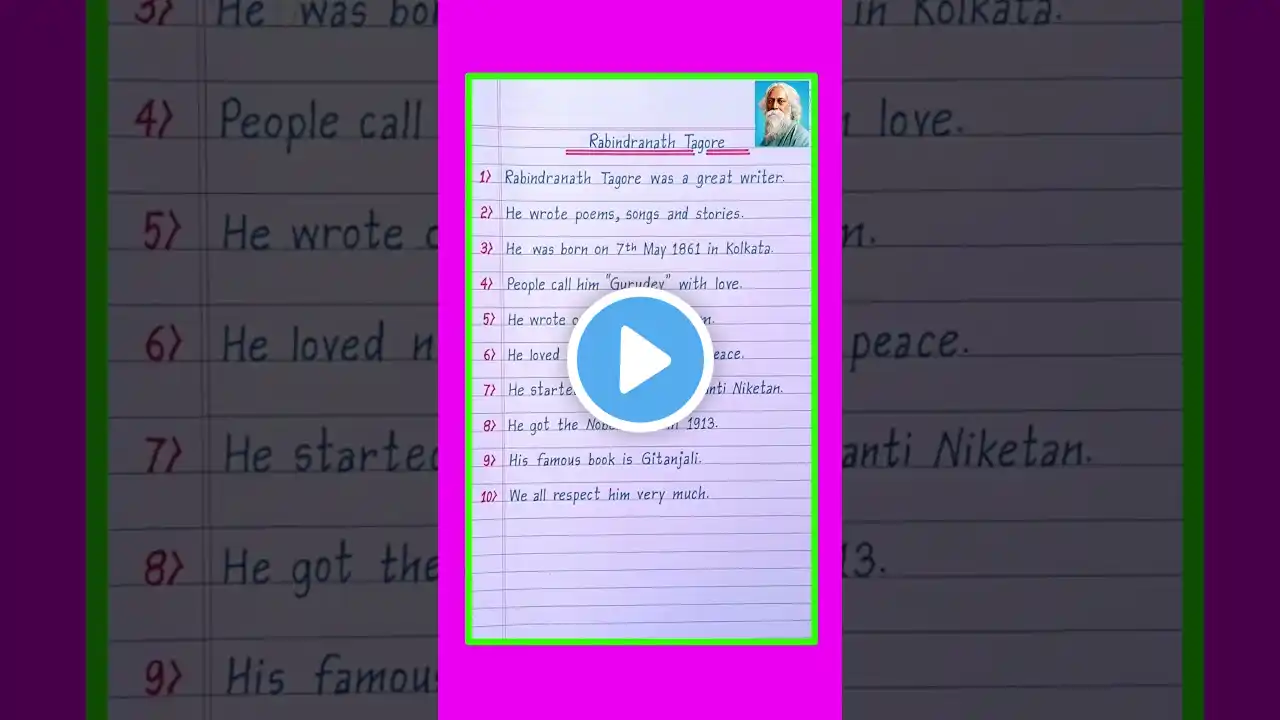 Rabindranath Tagore
1) Rabindranath Tagore was a great writer.
2) He wrote poems, songs and stories.
3) He was born on 7th May 1861 in Kolkata.
4) People call him "Gurudev" with love.
5) He wrote
6) He loved peace.
7) He started Niketan.
8) He got the 1913.
9) His famous book is Gitanjali.
10) We all respect him very much.